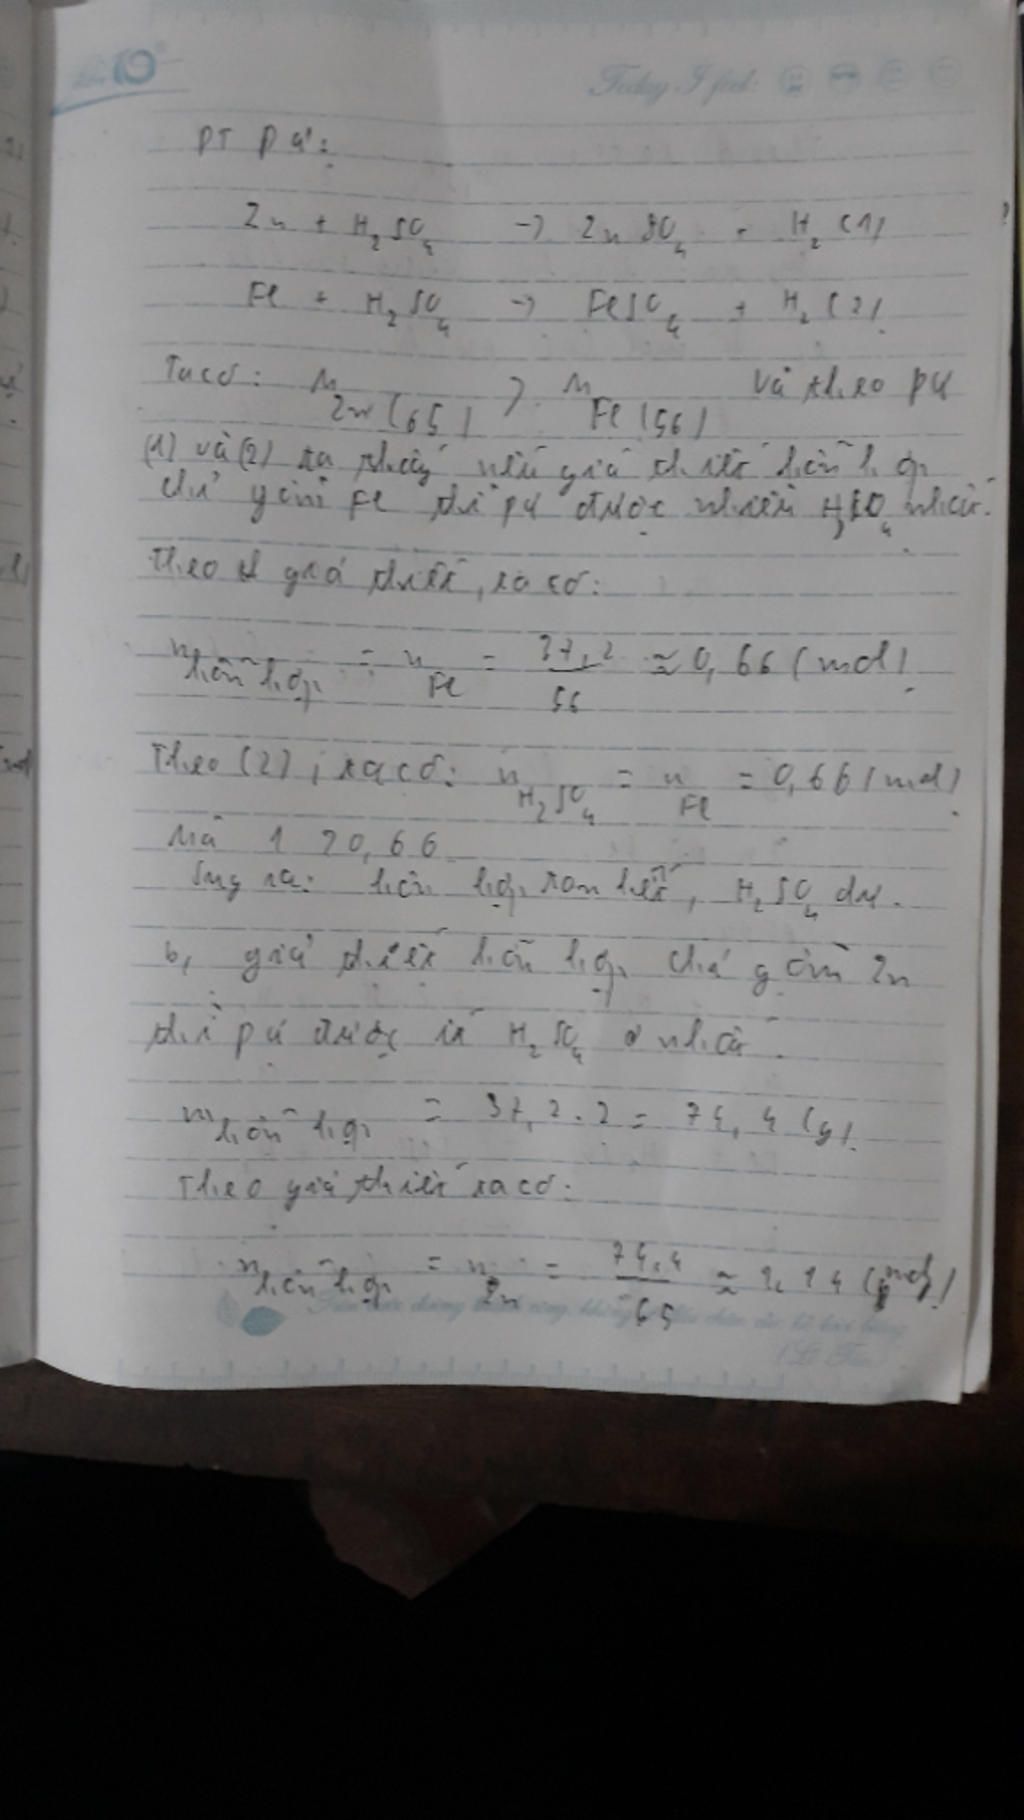 Today I feel:
PT pứ:
Zn + H2SO4 -> ZnSO4 + H2 (1)
Fe + H2SO4 -> FeSO4 + H2 (2)
Ta có: M Zn (65) > M Fe (56) và theo pứ
(1) và (2) ta thấy nếu giả thiết hỗn hợp
chỉ gồm Fe thì pứ được nhiều H2SO4 nhất.
Theo giả thiết, ta có:
n hỗn hợp = n Fe = 37,2/56 ≈ 0,66 (mol)
Theo (2), ta có: n H2SO4 = n Fe = 0,66 (mol)
Mà 1 > 0,66
Suy ra: hỗn hợp tan hết, H2SO4 dư.
b, giả thiết hỗn hợp chỉ gồm Zn
thì pứ được ít H2SO4 nhất
m hỗn hợp = 37,2.2 = 74,4 (g)
Theo giả thiết ta có:
n hỗn hợp = n Zn = 74,4/65 ≈ 1,14 (mol)